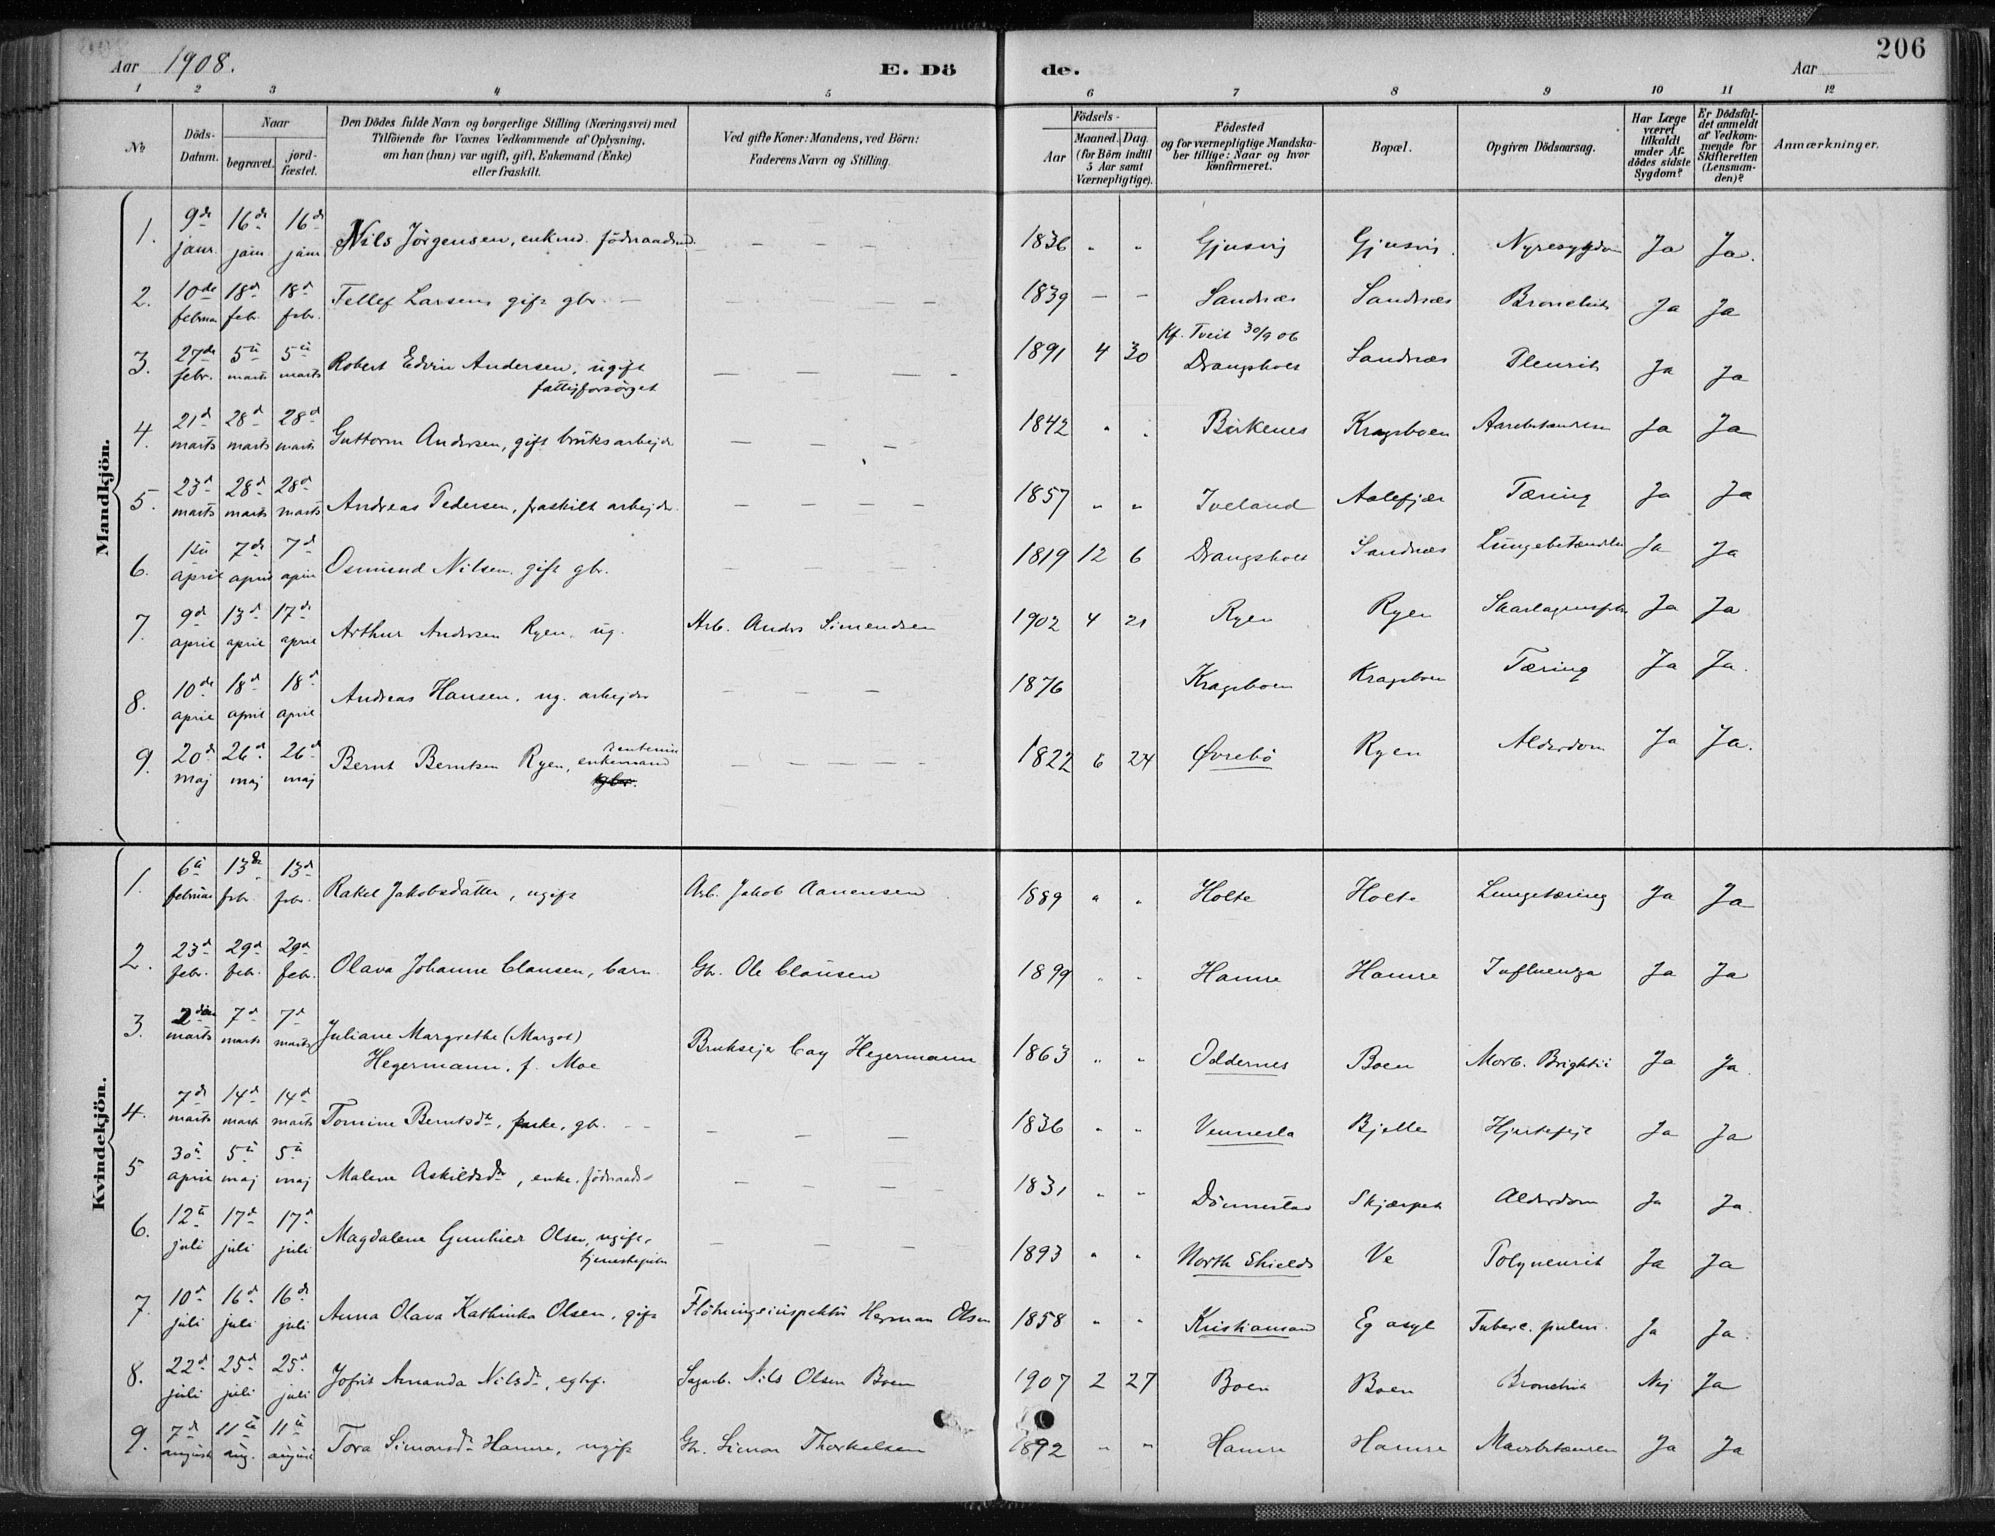 Aar 1908. E. Dö de. Aar 206
1 2 3 4 5 6 7 8 9 10 11 12
No
Döds-Datum.
Naar
begravet.
jord-fæstet.
Den Dödes fulde Navn og borgerlige Stilling (Næringsvei) med
Tilföiende for Voxnes Vedkommende af Oplysning,
om han (hun) var ugift, gift, Enkemand (Enke)
eller fraskilt.
Ved gifte Koner: Mandens, ved Börn:
Faderens Navn og Stilling.
Födsels-
Aar
Maaned. Dag.
(for Börn indtil
5 Aar samt
Værnepligtige).
Födested
og for værnepligtige Mandska-
ber tillige: Naar og hvor
konfirmeret.
Bopæl.
Opgiven Dödsaarsag.
Har Læge
været
tilkaldt
under Af-
dödes sidste
Sygdom?
Er Dödsfal-
det anmeldt
af Vedkom-
mende for
Skifteretten
(Lensman-
den)?
Anmærkninger.
Mandkjön.
1. 9de janr. 16de janr 16de janr Nils Jörgensen, enkmd. föderaadsmd. — — — 1836 " " Gjusvig Gjusvig. Nyresygdom Ja Ja.
2. 10de februar 18d febr. 18d febr. Tellef Larsen, gift gbr. — — — — 1839 — — Sandnæs Sandnæs Bronchit Ja Ja
Kf. Tveit 30/9 06
3. 27de febr. 5te marts 5te marts Robert Edvin Andersen, ugift — — — — 1891 4 30 Drangsholt Sandnæs Pleurit Ja Ja
fattigforsörget
4. 21d marts 28d marts 28d marts Guttorm Andersen, gift bruksarbejder — — — 1842 " " Birkenes Kragsboen Aarebetændelse Ja Ja
5. 23d marts 28d marts 28d marts Andreas Pedersen, fraskilt arbejder. — — — — 1857 " " Iveland Aalefjær Tæring Ja Ja
6. 1ste april 7de april 7de april Osmund Nilsen, gift gbr. 1819 12 6 Drangsholt Sandnæs Lungebetændelse Ja Ja
7. 9d april 13d april 17de april Arthur Andersen Ryen, ug. Arb. Anders Simendsen 1902 4 21 Ryen Ryen Skarlagensfeber Ja Ja
8. 10de april 18d april 18d april Andreas Hansen, ug. arbejder — — — 1876 Kragsboen Kragsboen Tæring Ja Ja.
9. 20d maj 26d maj 26d maj Bernt Berntsen Ryen, enkemand — — — — 1822 6 24 Øvrebö Ryen Alderdom Ja Ja.
gbr.
Kvindekjön.
1. 6te februar 13de febr. 13d febr. Rakel Jakobsdatter, ugift Arb. Jakob Aanensen 1889 " " Holte Holte Lungetæring Ja Ja
2. 23d febr. 29d febr. 29d febr. Olava Johanne Clausen, barn. Gbr. Ole Clausen 1899 " " Hamre Hamre Influenza Ja Ja
3. 2den marts 7d marts 7d marts Juliane Margrethe (Margot) Bruksejer Cay Hegermann 1863 " " Oddernes Boen Morb. Brightii Ja Ja.
Hegermann, f. Moe
4. 7de marts 14d marts 14d marts Tomine Berntsdtr, enke, gbr. — — — — 1836 " " Vennesla Bjelle Hjertefejl Ja Ja
5 30te april 5te maj 5te maj Malene Askildsdtr, enke, föderaads- — — — — 1831 " " Dönnestad Skjærpet Alderdom Ja Ja.
6. 12te juli 17d juli 17d juli Magdalene Gunhild Olsen, ugift, — — — 1893 " " North Shields Ve Polyneurit Ja Ja
tjenestepike
7. 10d juli 16d juli 16de juli Anna Olava Kathinka Olsen, gift Flötningsinspektör Herman Olsen 1858 " " Kristiansand Eg asyl Tuberc. pulm. Ja Ja.
8. 22d juli 25d juli 25d juli Jofrit Amanda Nilsdtr, egtef. Sagarb. Nils Olsen Boen 1907 2 27 Boen Boen Bronchit Nej Ja
9. 7de august 11te aug. 11te august Tora Simonsdtr Hamre, ugift Gbr. Simon Thorkelsen 1892 " " Hamre Hamre Mavebetænd. Ja Ja